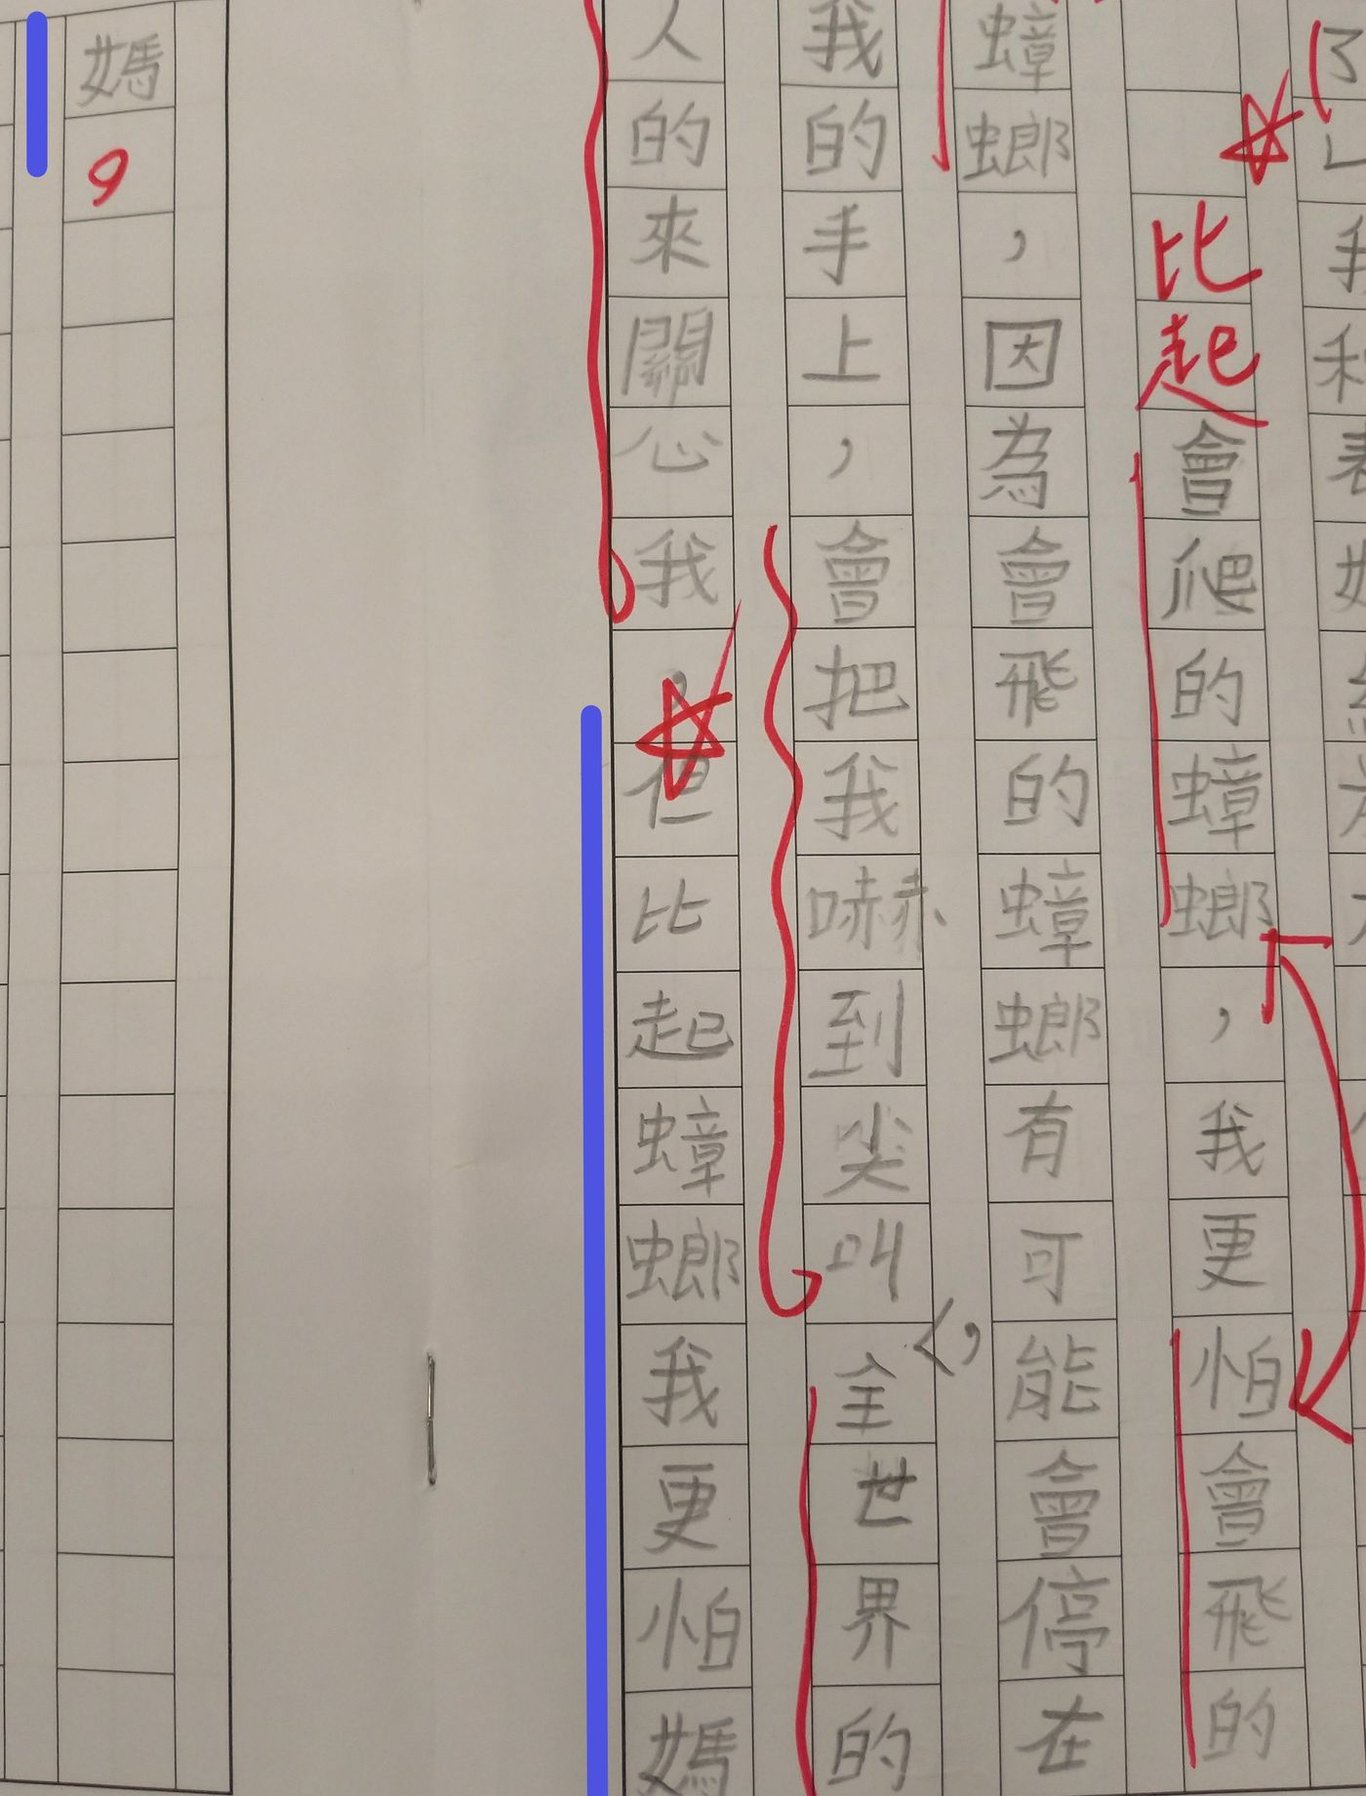 比起會爬的蟑螂，我更怕會飛的
蟑螂，因為會飛的蟑螂有可能會停在
我的手上，會把我嚇到尖叫，全世界的
人的來關心我，但比起蟑螂我更怕媽
媽